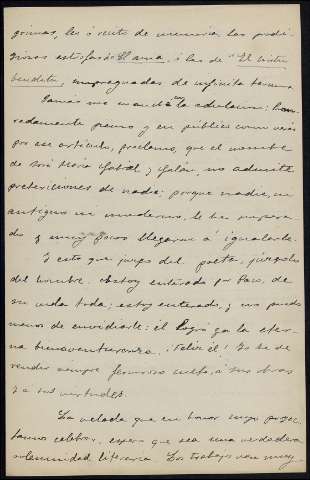 grimas, les ó recito de memoria, las prodi-
giosas estrofas de El ama, ó las de "El Cristu
benditu", impregnadas de infinita ternura.
Jamás me manchó la adulacion: hon-
radamente pienso y en público
por ese artículo, proclamo, que el nombre
de José María Gabriel y Galán, no admite
pretericiones de nadie; porque nadie, ni
antiguo ni moderno, le ha supera-
do y muy pocos llegaron á igualarle.
Y esto que juzgo del poeta, júzgolo
del hombre. Estoy enterado por Paco, de
su vida toda; estoy enterado, y no puedo
menos de envidiarle: él logró ya la eter-
na bienaventuranza. ¡Feliz él! Yo he de
rendir siempre fervoroso culto, á sus obras
y á sus virtudes.
La velada que en honor suyo proyec-
tamos celebrar, espero que sea una verdadera
solemnidad literaria. Los trabajos van muy